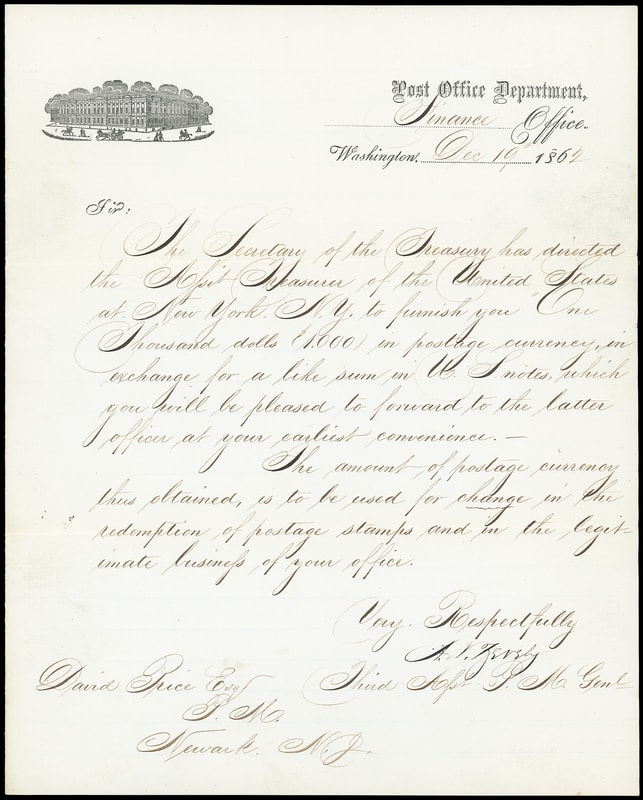 Post Office Department,
Finance Office.
Washington, Dec 19 1862
Sir:
The Secretary of the Treasury has directed
the Asst Treasurer of the United States
at New York. N.Y. to furnish you One
Thousand dolls (1.000) in postage currency, in
exchange for a like sum in U. S notes, which
you will be pleased to forward to the latter
officer at your earliest convenience. —
The amount of postage currency
thus obtained, is to be used for change in the
redemption of postage stamps and in the legit-
imate business of your office.
Very. Respectfully
A. N. Zevely
Third Asst P. M. Genl
David Price Esq
P. M.
Newark. N. J.